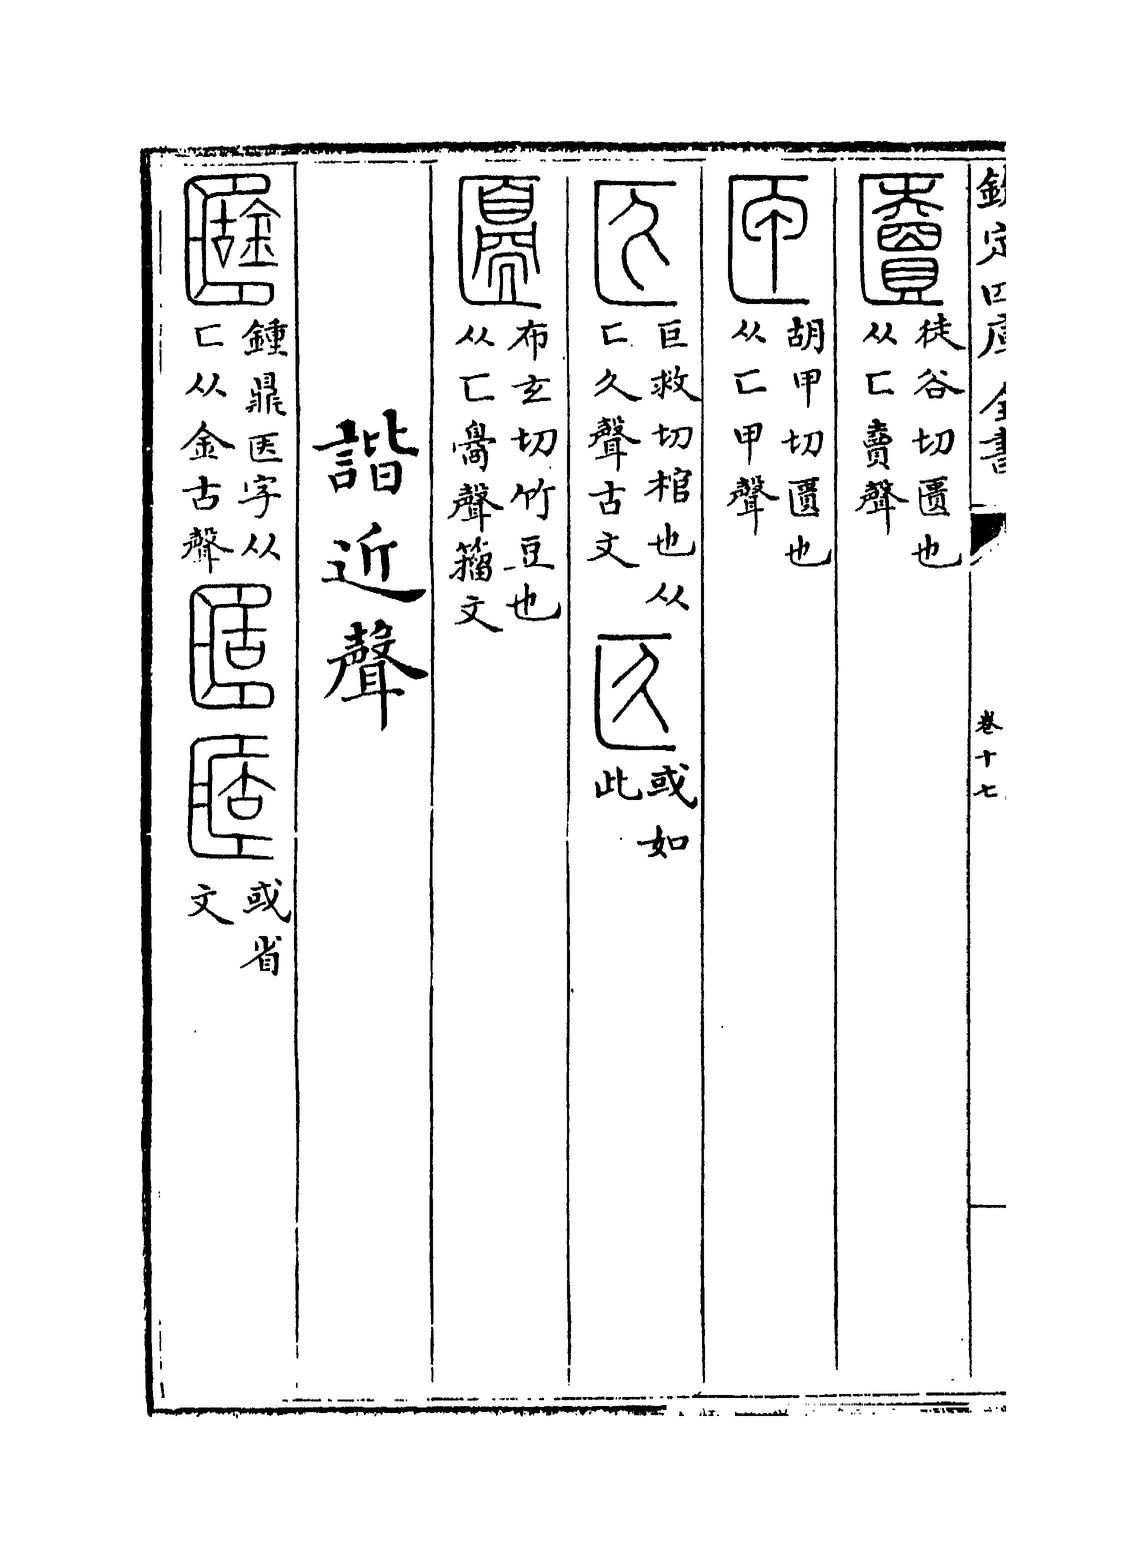 欽定四庫全書
卷十七
匵徒谷切匱也从匚賣聲
匣胡甲切匱也从匚甲聲
匛巨救切棺也从匚久聲古文 匛或如此
布玄切竹豆也从匚臱聲籀文
諧近聲
鍾鼎匜字从匚从金古聲 或省文